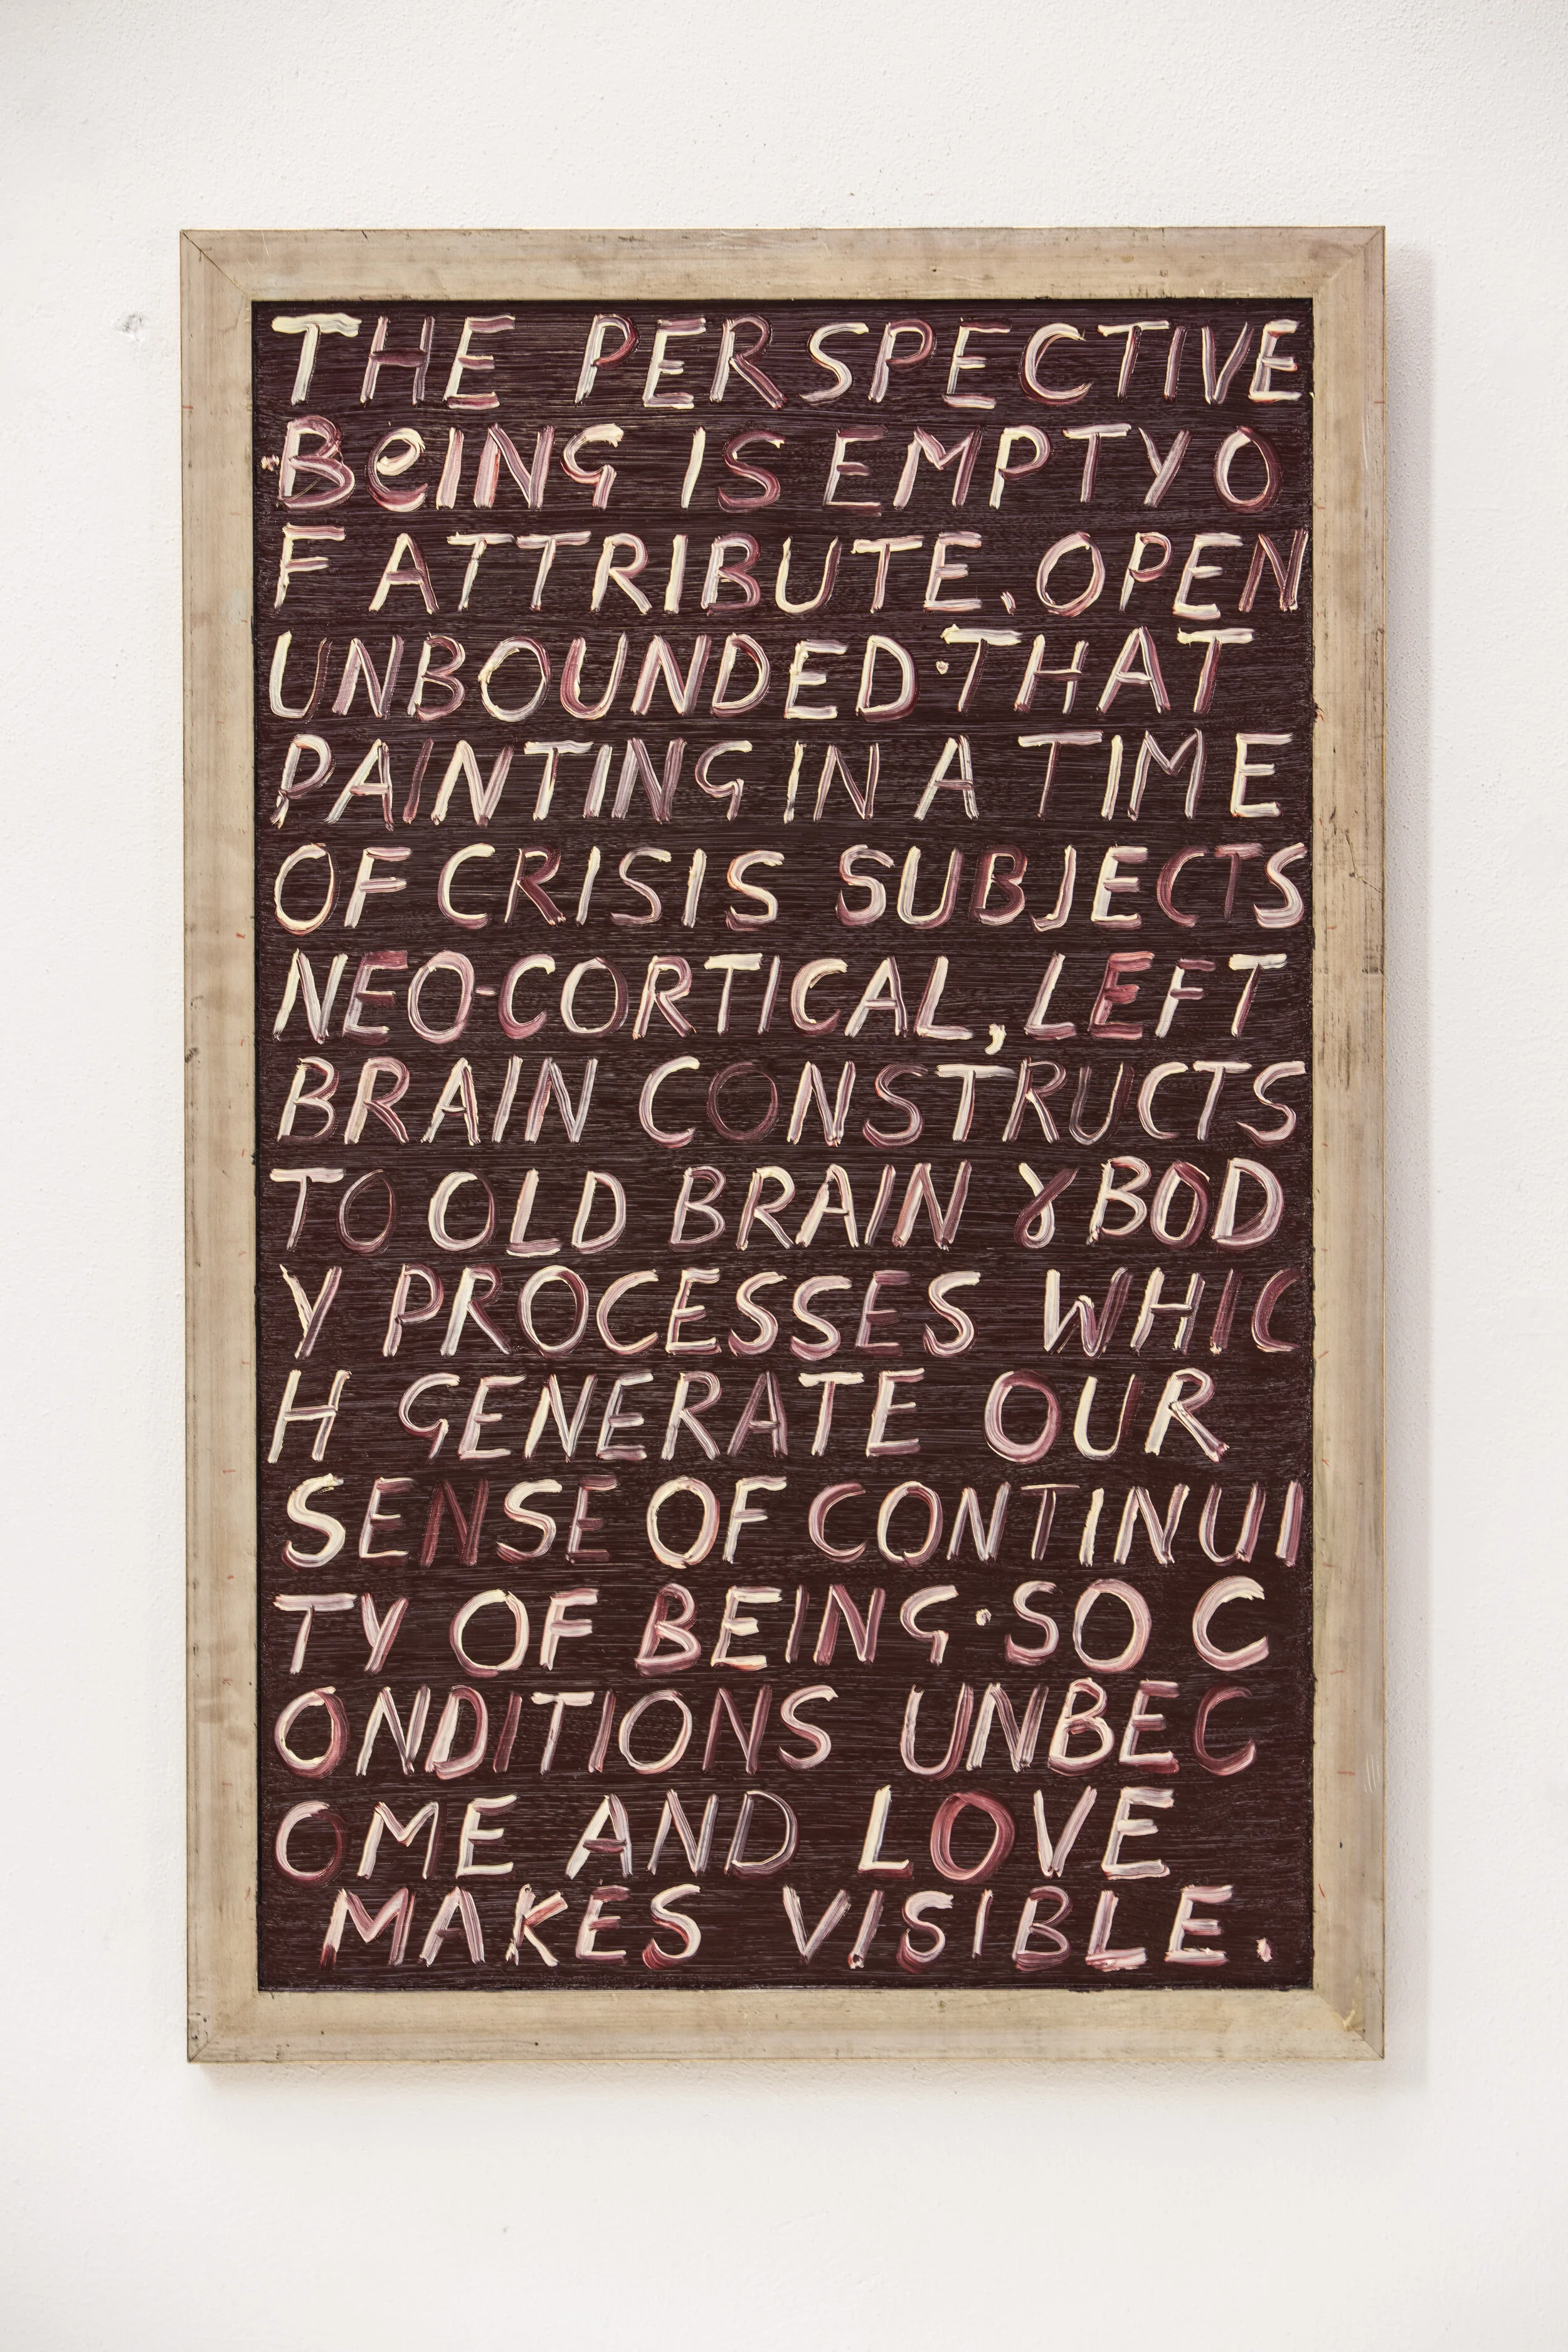 THE PERSPECTIVE
BeING IS EMPTY O
F ATTRIBUTE. OPEN
UNBOUNDED·THAT
PAINTING IN A TIME
OF CRISIS SUBJECTS
NEO-CORTICAL, LEFT
BRAIN CONSTRUCTS
TO OLD BRAIN & BOD
Y PROCESSES WHIC
H GENERATE OUR
SENSE OF CONTINUI
TY OF BEING·SO C
ONDITIONS UNBEC
OME AND LOVE
MAKES VISIBLE.